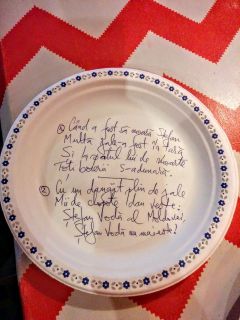 ① Când a fost să moară Ștefan
Multă jale-a fost în țară
Și la patul lui de moarte
Toți boierii s-adunară.
② Cu un dangăt plin de jale
Mii de clopote dau veste:
Ștefan Vodă al Moldovei,
Ștefan Vodă nu mai este!